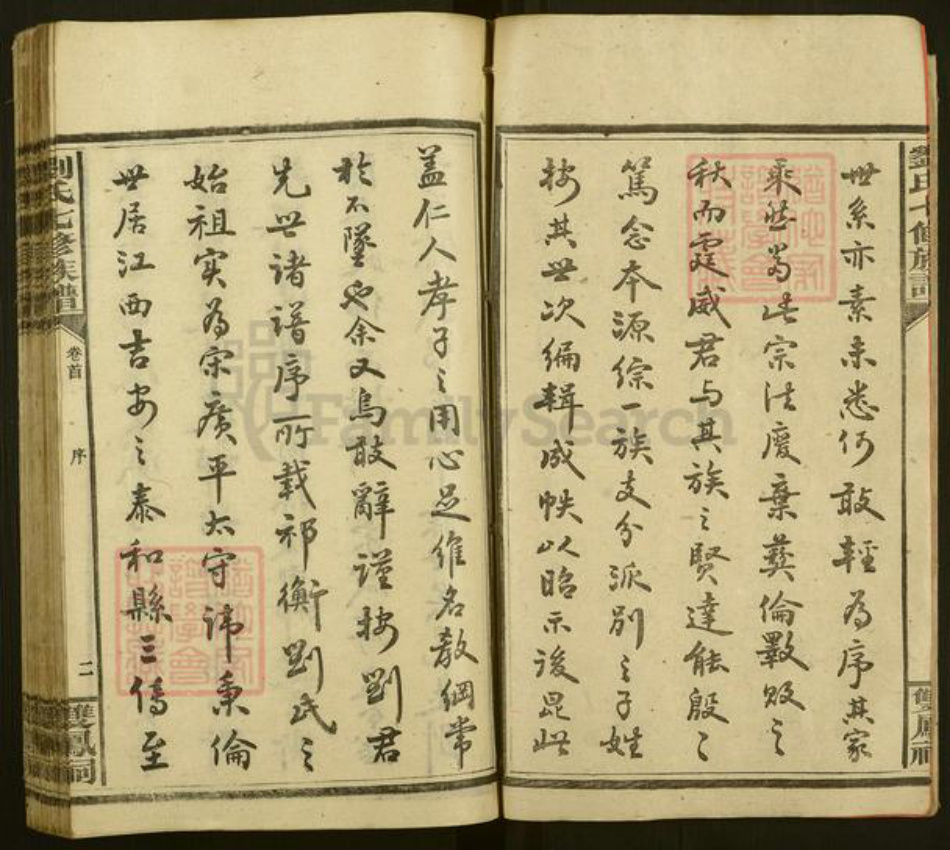 世系亦素未悉何敢輕為序其家
乘然當此宗法廢棄彝倫斁敗之
秋而霆威君与其族之賢達能殷〻
篤念本源綜一族支分派別之子姓
按其世次編輯成帙以昭示後昆此
蓋仁人孝子之用心足維名教綱常
於不墜也余又烏敢辭謹按劉君
先世諸譜序所載祁衡劉氏之
始祖实為宋廣平太守諱秉倫
世居江西吉安之泰和縣三傳至
劉氏七修族譜
卷首
序
二
雙鳳祠
FamilySearch